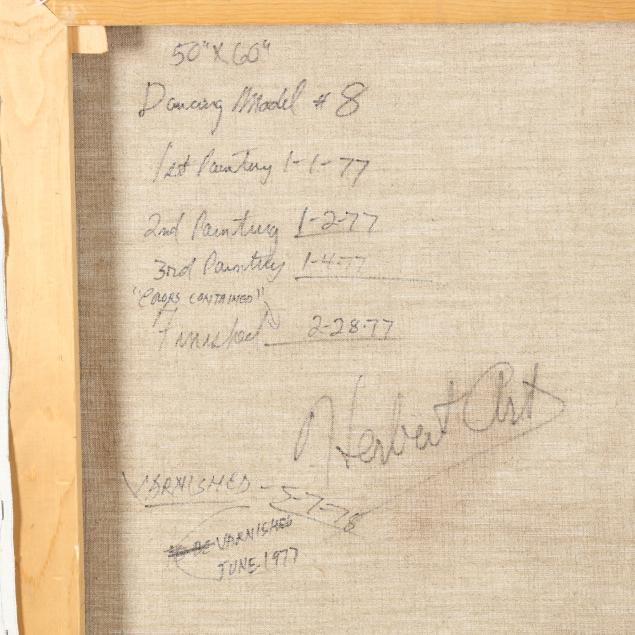 50" X 60"
Dancing Model # 8
1st Painting 1-1-77
2nd Painting 1-2-77
3rd Painting 1-4-77
"COLORS CONTAINED"
Finished 2-28-77
Herbert Art
VARNISHED - 5-7-78
DE VARNISHED
JUNE 1977